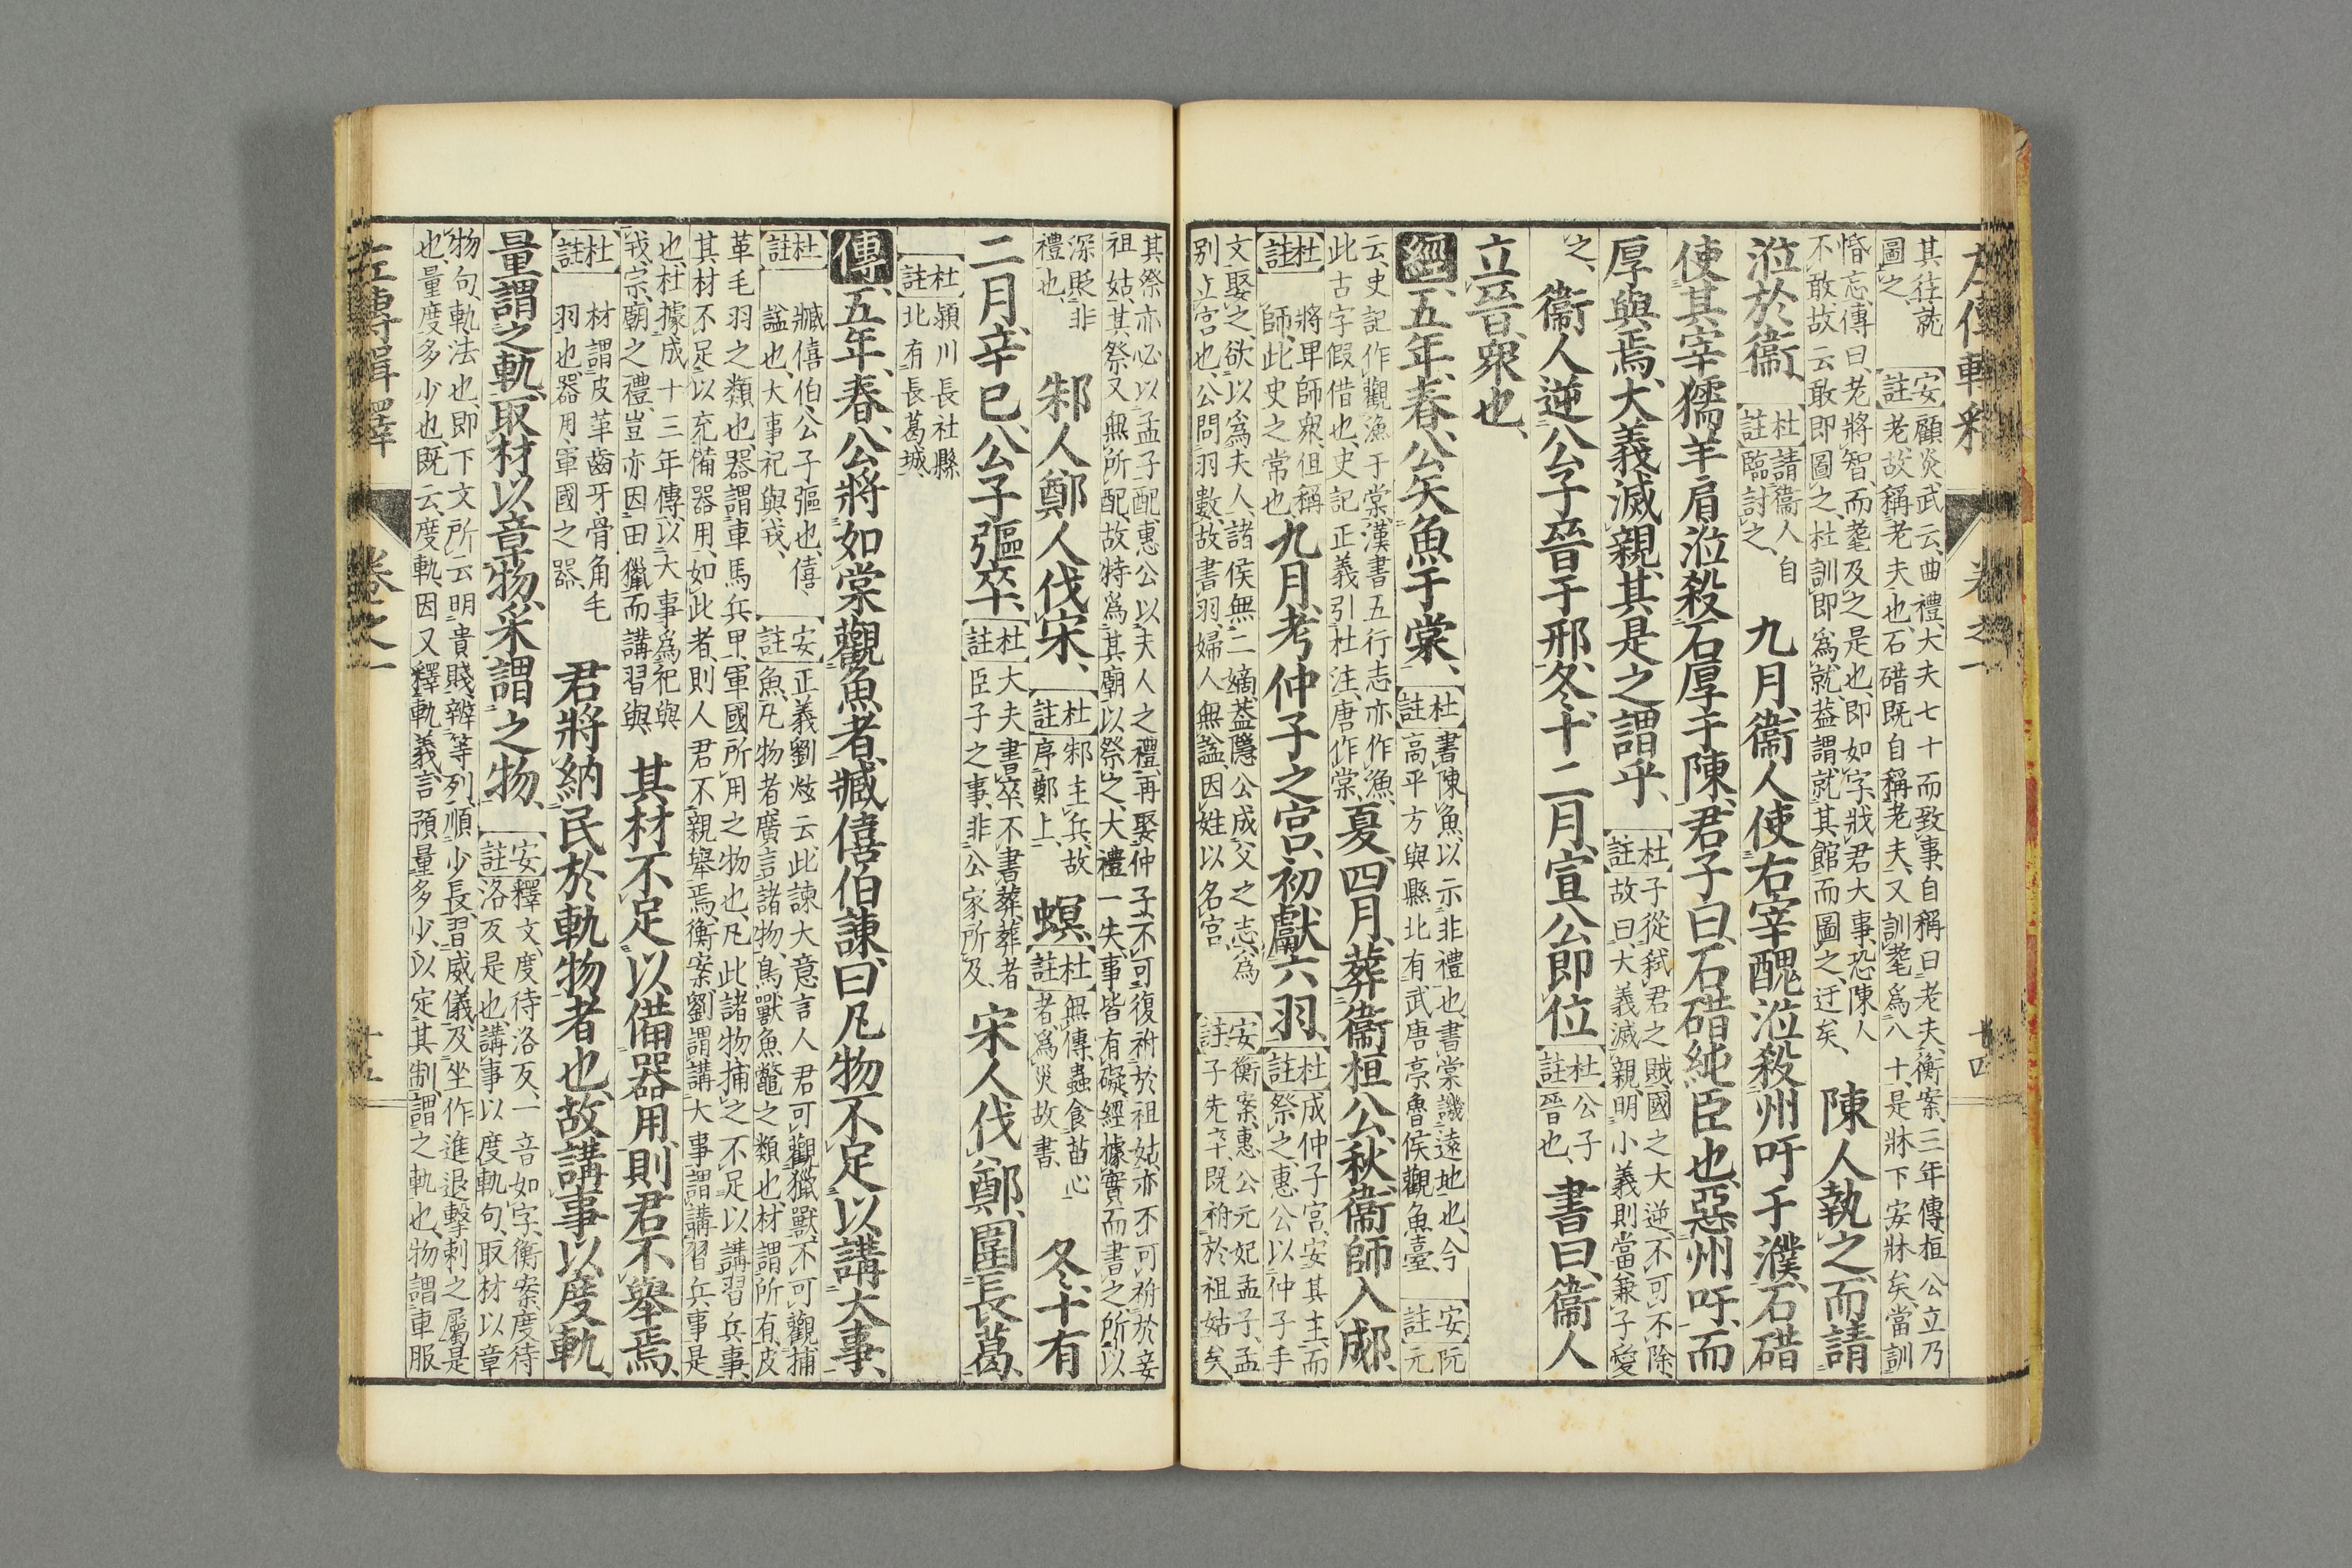 左傳輯釋
卷之一
十四
其往就
圖之
安註
顧炎武云、曲禮、大夫七十而致事、自稱曰老夫、衡案、三年傳、桓公立乃
老、故稱老夫也、石碏既自稱老夫、又訓耄爲八十、是牀下安牀矣、當訓
惛忘、傳曰、老將智、而耄及之是也、即如字、戕君大事、恐陳人
不敢、故云敢即圖之、杜訓即爲就、蓋謂就其館而圖之、迂矣、
陳人執之、而請
涖於衞、
杜註
請衞人自
臨討之、
九月、衞人使右宰醜涖殺州吁于濮、石碏
使其宰獳羊肩涖殺石厚于陳、君子曰、石碏純臣也、惡州吁、而
厚與焉、大義滅親、其是之謂乎、
杜註
子從弑君之賊、國之大逆、不可不除、
故曰、大義滅親、明小義則當兼子愛
之、
衞人逆公子晉于邢、冬、十二月、宣公即位、
杜註
公子
晉也、
書曰、衞人
立晉、衆也、
經、五年、春、公矢魚于棠、
杜註
書陳魚、以示非禮也、書棠、譏遠地也、今
高平方與縣北有武唐亭、魯侯觀魚臺、
安註
阮元
云、史記作觀漁于棠、漢書五行志亦作漁、
此古字假借也、史記正義引杜注、唐作棠、
夏、四月、葬衞桓公、秋、衞師入郕、
杜註
將卑師衆、但稱
師、此史之常也、
九月、考仲子之宮、初獻六羽、
杜註
成仲子宮、安其主而
祭之、惠公以仲子手
文娶之、欲以爲夫人、諸侯無二嫡、蓋隱公成父之志、爲
別立宮也、公問羽數、故書羽、婦人無謚、因姓以名宮、
安註
衡案、惠公元妃孟子、孟
子先卒、既祔於祖姑矣、
其祭亦必以孟子配、惠公以夫人之禮、再娶仲子、不可復祔於祖姑、亦不可祔於妾
祖姑、其祭又無所配、故特爲其廟以祭之、大禮一失、事皆有礙、經據實而書之、所以
深貶非
禮也、
邾人鄭人伐宋、
杜註
邾主兵、故
序鄭上、
螟、
杜註
無傳、蟲食苗心
者爲災、故書、
冬、十有
二月、辛巳、公子彄卒、
杜註
大夫書卒、不書葬、葬者
臣子之事、非公家所及、
宋人伐鄭、圍長葛、
杜註
潁川長社縣
北有長葛城、
傳、五年、春、公將如棠觀魚者、臧僖伯諫曰、凡物不足以講大事、
杜註
臧僖伯、公子彄也、僖、
謚也、大事、祀與戎、
安註
正義、劉炫云、此諫大意、言人君可觀獵獸、不可觀捕
魚、凡物者、廣言諸物、鳥獸魚鼈之類也、材謂所有皮
革毛羽之類也、器謂車馬兵甲、軍國所用之物也、凡此諸物、捕之不足以講習兵事、
其材不足以充備器用、如此者、則人君不親舉焉、衡案、劉謂講大事、謂講習兵事是
也、杜據成十三年傳、以大事爲祀與
戎、宗廟之禮、豈亦因田獵而講習與、
其材不足以備器用、則君不舉焉、
杜註
材謂皮革齒牙骨角毛
羽也、器用、軍國之器、
君將納民於軌物者也、故講事以度軌
量謂之軌、取材以章物采謂之物、
安註
釋文、度、待洛反、一音如字、衡案、度、待
洛反是也、講事以度軌句、取材以章
物句、軌、法也、即下文所云、明貴賤、辨等列、順少長、習威儀、及坐作進退擊刺之屬是
也、量、度多少也、既云度軌、因又釋軌義、言預量多少、以定其制、謂之軌也、物謂車服
左傳輯釋
卷之一
十五